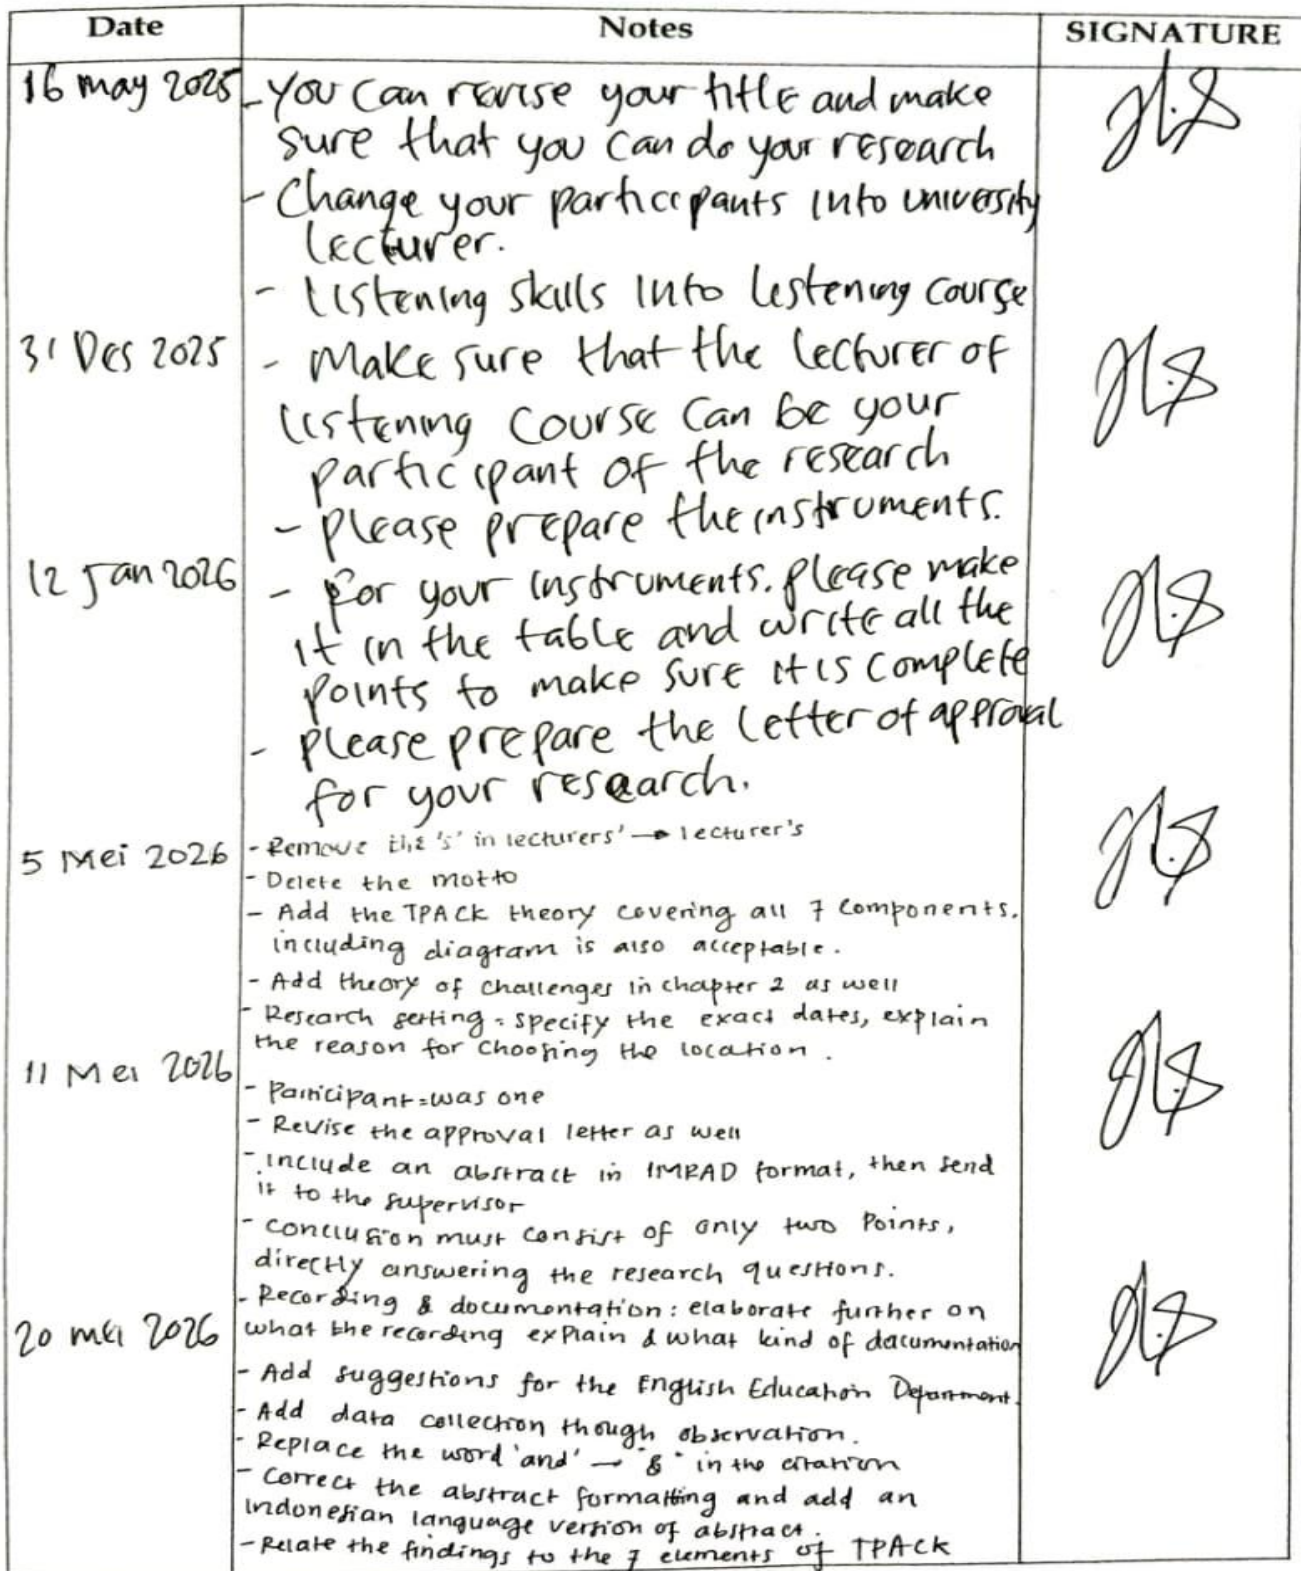 Date Notes SIGNATURE
16 may 2025 - You can revise your title and make
sure that you can do your research
- Change your participants into university
lecturer.
- listening skills into listening course
31 Des 2025 - Make sure that the lecturer of
listening course can be your
participant of the research
- please prepare the instruments.
12 Jan 2026 - For your instruments. please make
it in the table and write all the
points to make sure it is complete
- please prepare the letter of approval
for your research.
5 Mei 2026 - Remove the 's' in lecturers' → lecturer's
- Delete the motto
- Add the TPACK theory covering all 7 components.
including diagram is also acceptable.
- Add theory of challenges in chapter 2 as well
- Research setting = specify the exact dates, explain
the reason for choosing the location.
11 Mei 2026
- Participant = was one
- Revise the approval letter as well
- include an abstract in IMRAD format, then send
it to the supervisor
- conclusion must consist of only two points,
directly answering the research questions.
- Recording & documentation: elaborate further on
20 mei 2026 what the recording explain & what kind of documentation
- Add suggestions for the English Education Department.
- Add data collection though observation.
- Replace the word 'and' → "&" in the citation
- Correct the abstract formatting and add an
Indonesian language version of abstract.
- Relate the findings to the 7 elements of TPACK